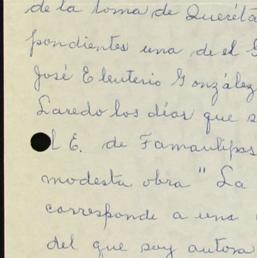 de la toma de Queréta
pondientes una de el E
José Eleuterio González
Laredo los días que s
l E. de Tamaulipas
modesta obra "La
corresponde a una
del que soy autora